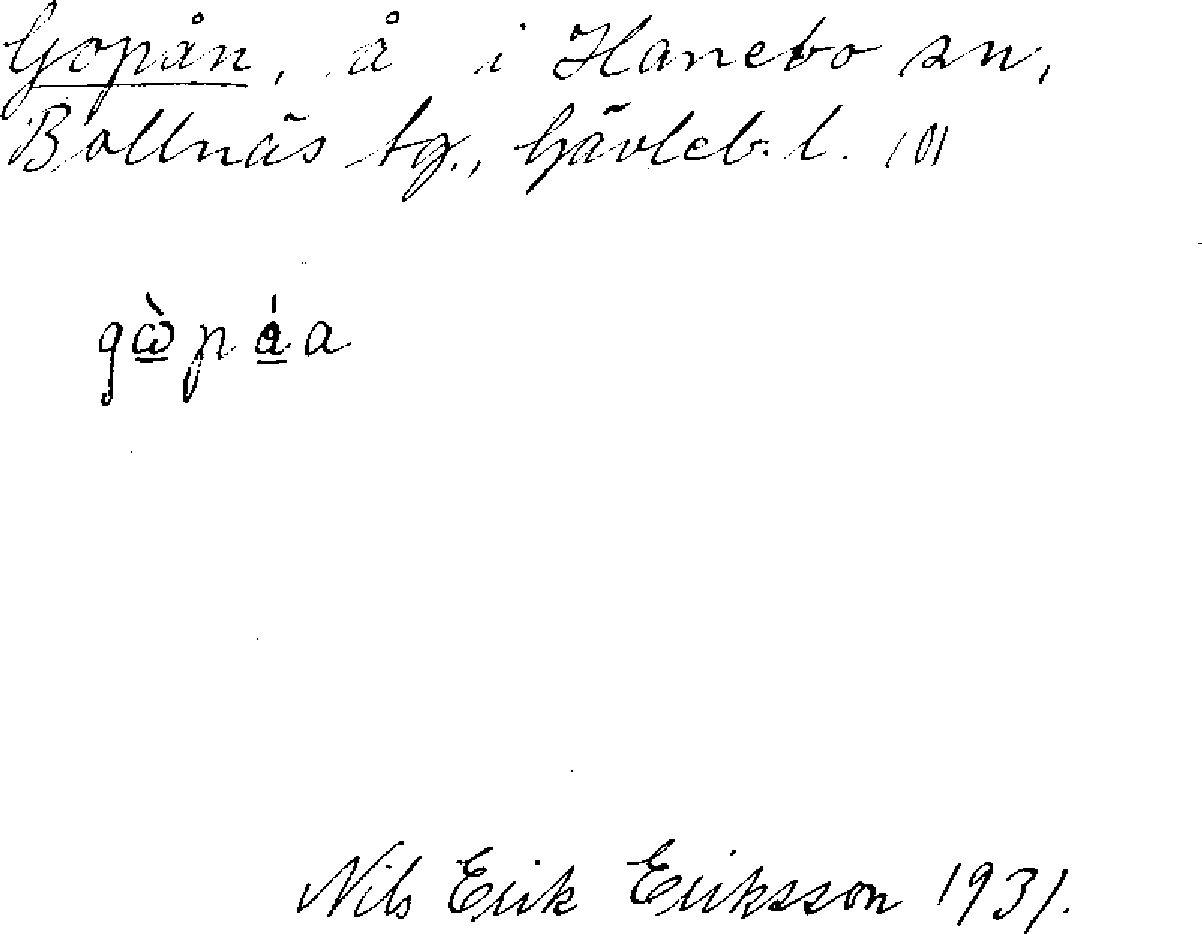 Gopån, å i Hanebo sn,
Bollnäs tg., Gävleb. l. 101
gὼ̲pá̲a
Nils Erik Eriksson 1931.